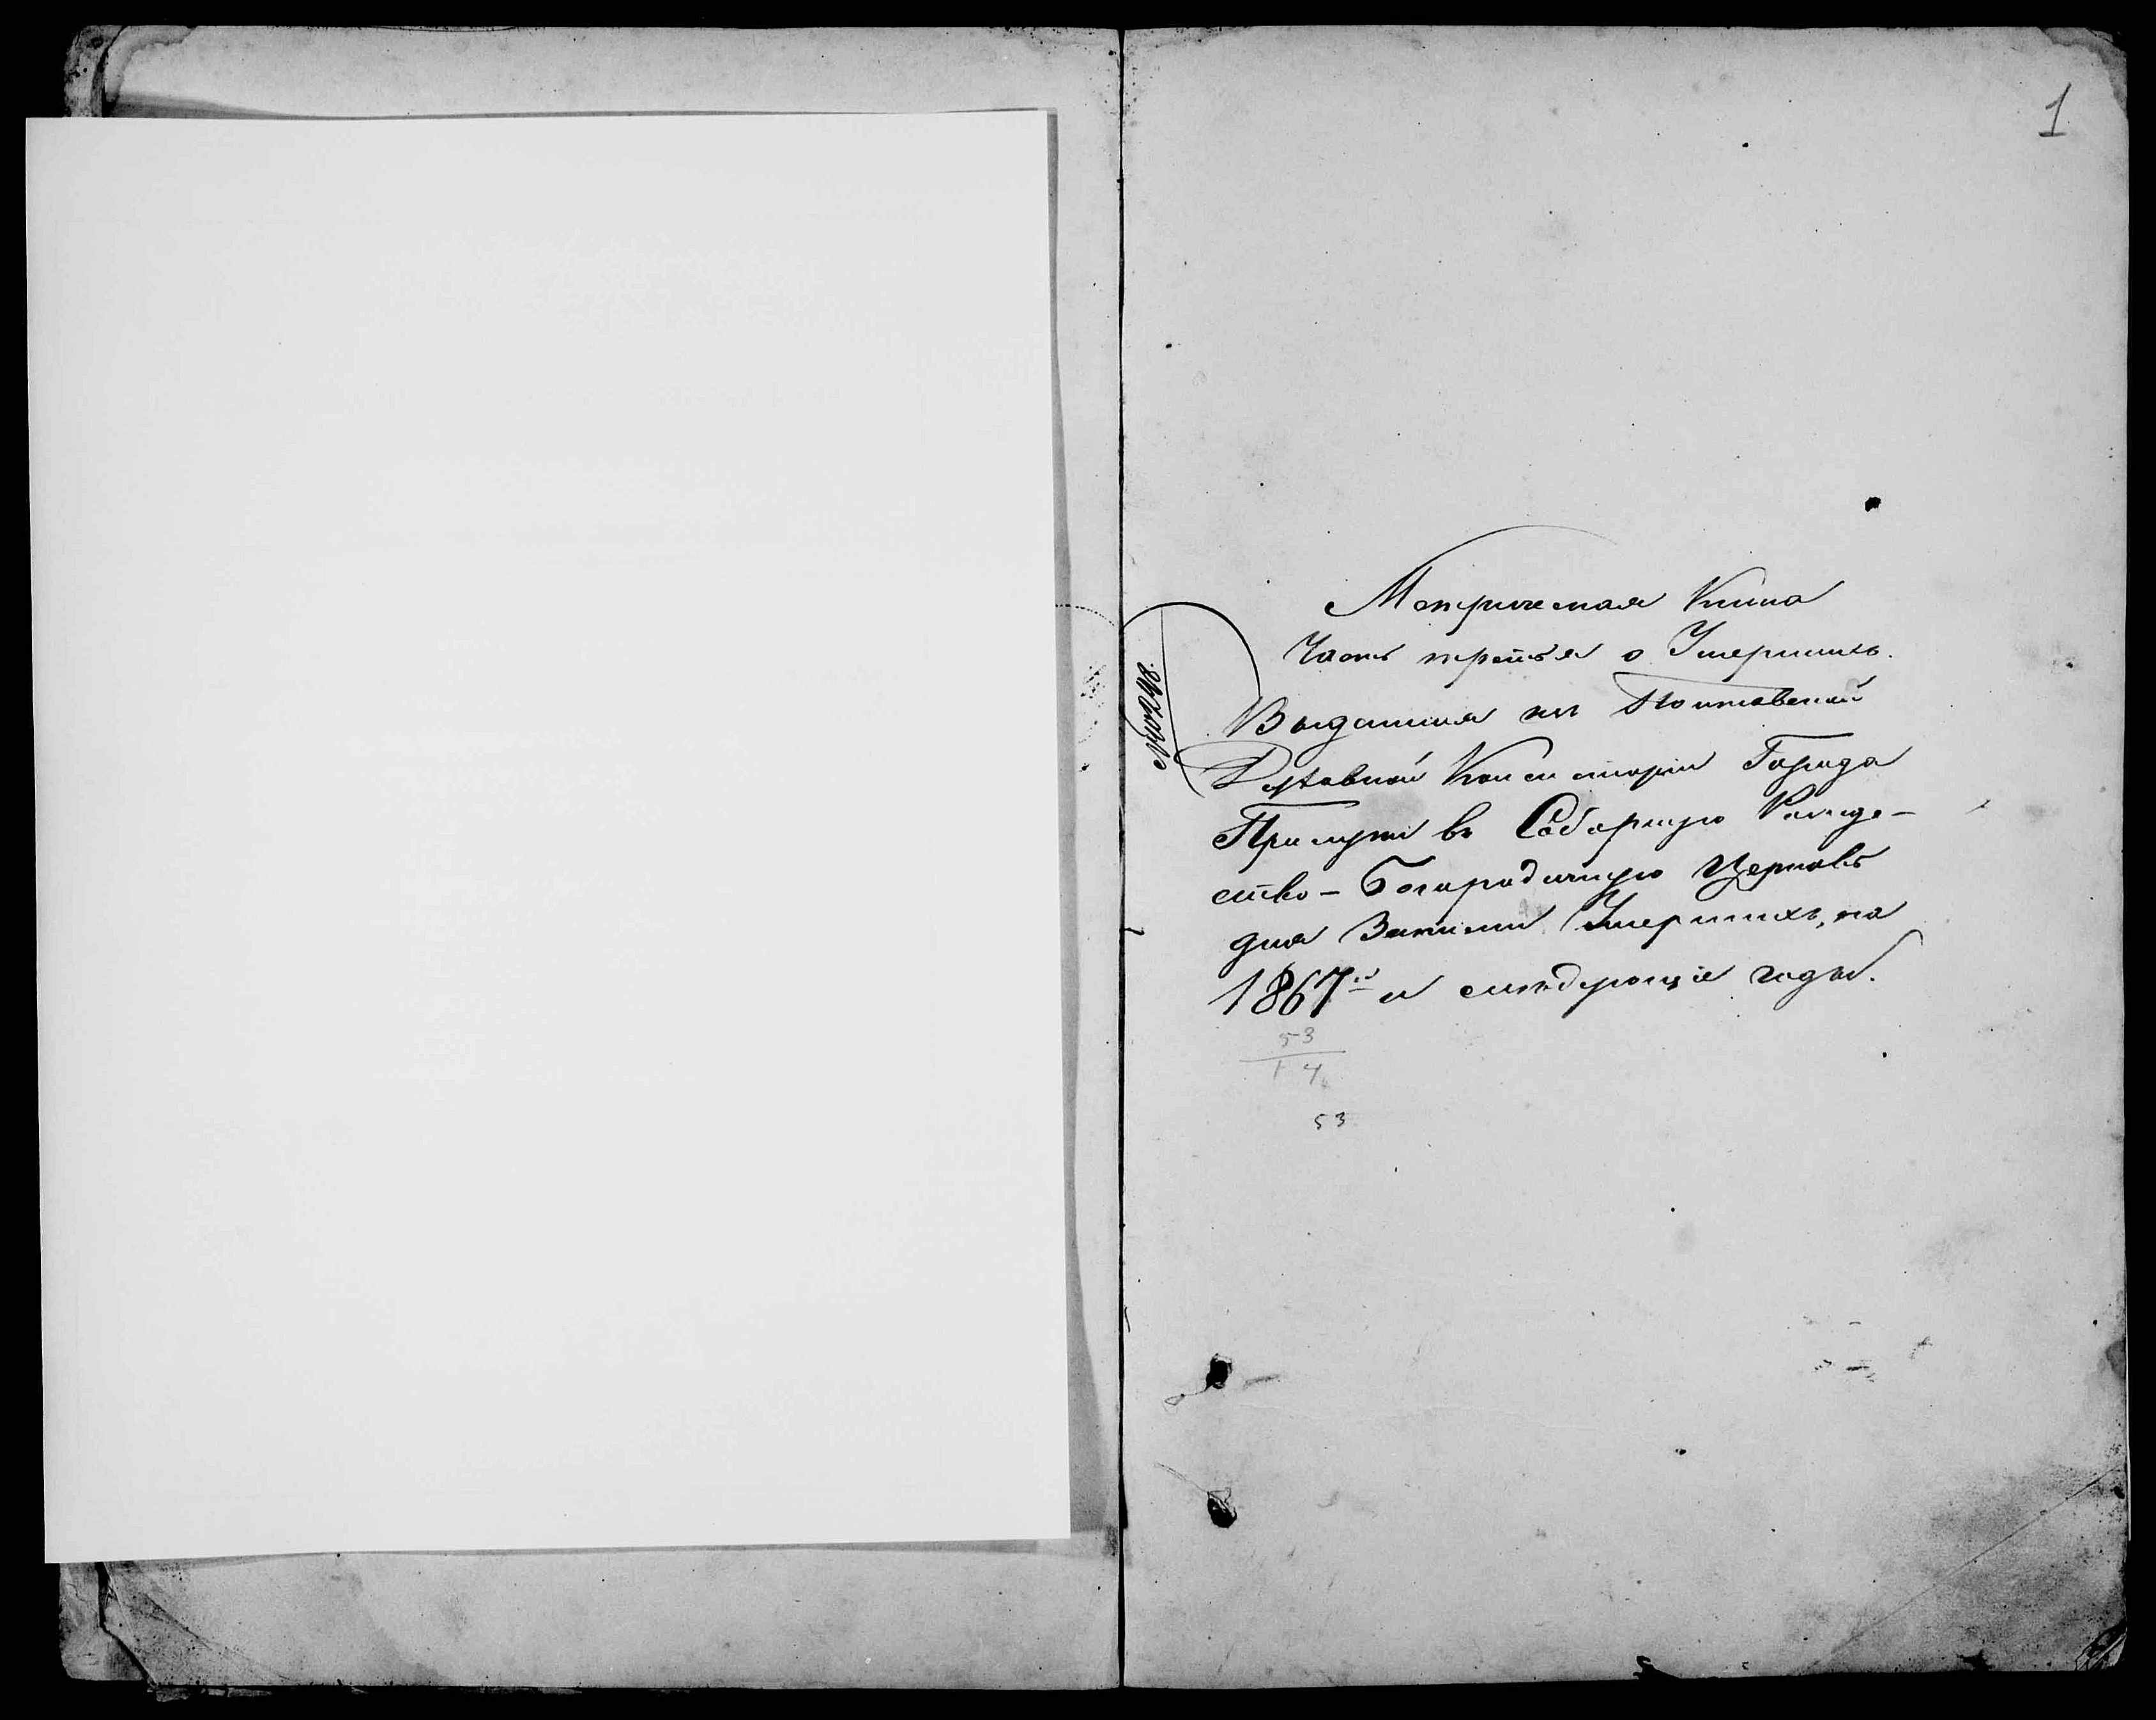 1
Метрическая Книга
Часть третья о Умершихъ.
Выданная изъ Полтавской
Духовной Консисторіи Города
Прилуки въ Соборную Рожде-
ство-Богородичную Церковь
для Записки Умершихъ, на
1867й и слѣдующіе годы.
№ 10248.
53
14
53